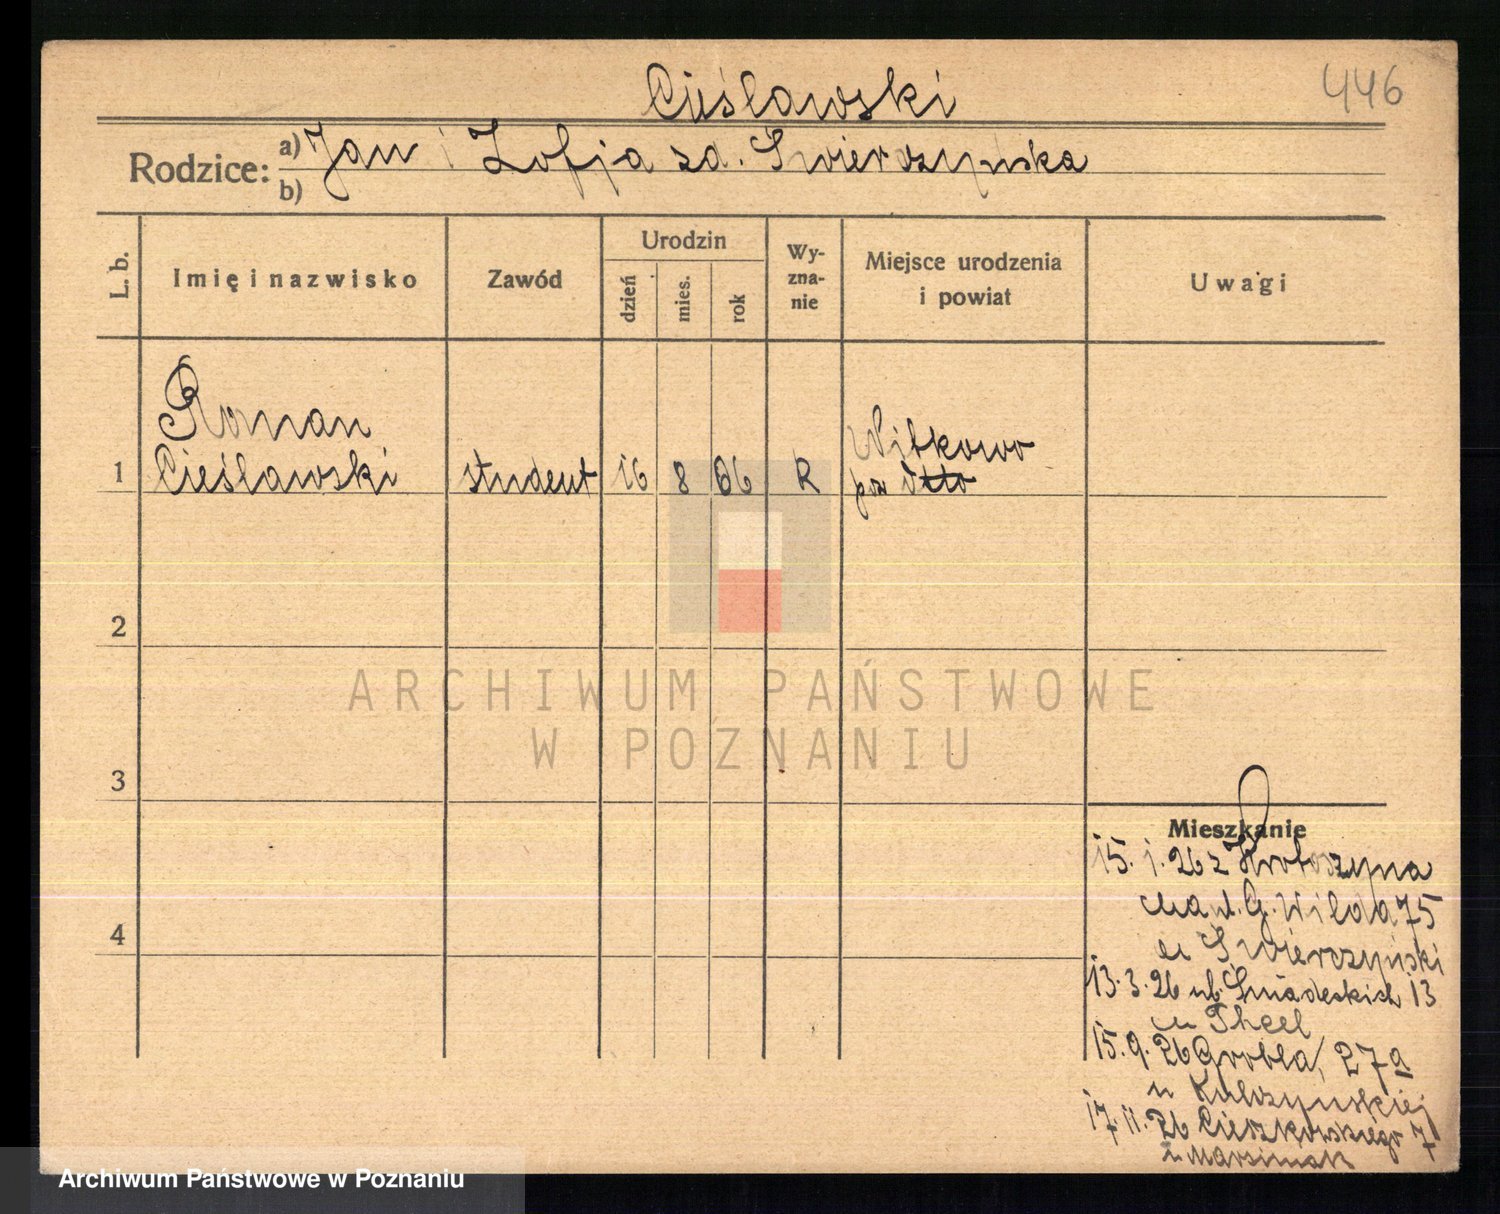 446
Cieślawski
Rodzice: a) Jan i Zofja zd. Świerczyńska
b)
L. b.
Imię i nazwisko
Zawód
Urodzin
dzień
mies.
rok
Wy-
zna-
nie
Miejsce urodzenia
i powiat
Uwagi
Roman
Cieślawski
1
student
16
8
06
R
Witkowo
pow
2
3
4
Mieszkanie
15. 1. 26 z Krotoszyna
ul. G. Wilda 75
u Świerczyński
13. 3. 26 ul. Śniadeckich 13
u Theel
15. 9. 26 Grobla, 27a
u
17. 11. 26 Cieszkowskiego 7
u Marciniak
ARCHIWUM PAŃSTWOWE
W POZNANIU
Archiwum Państwowe w Poznaniu